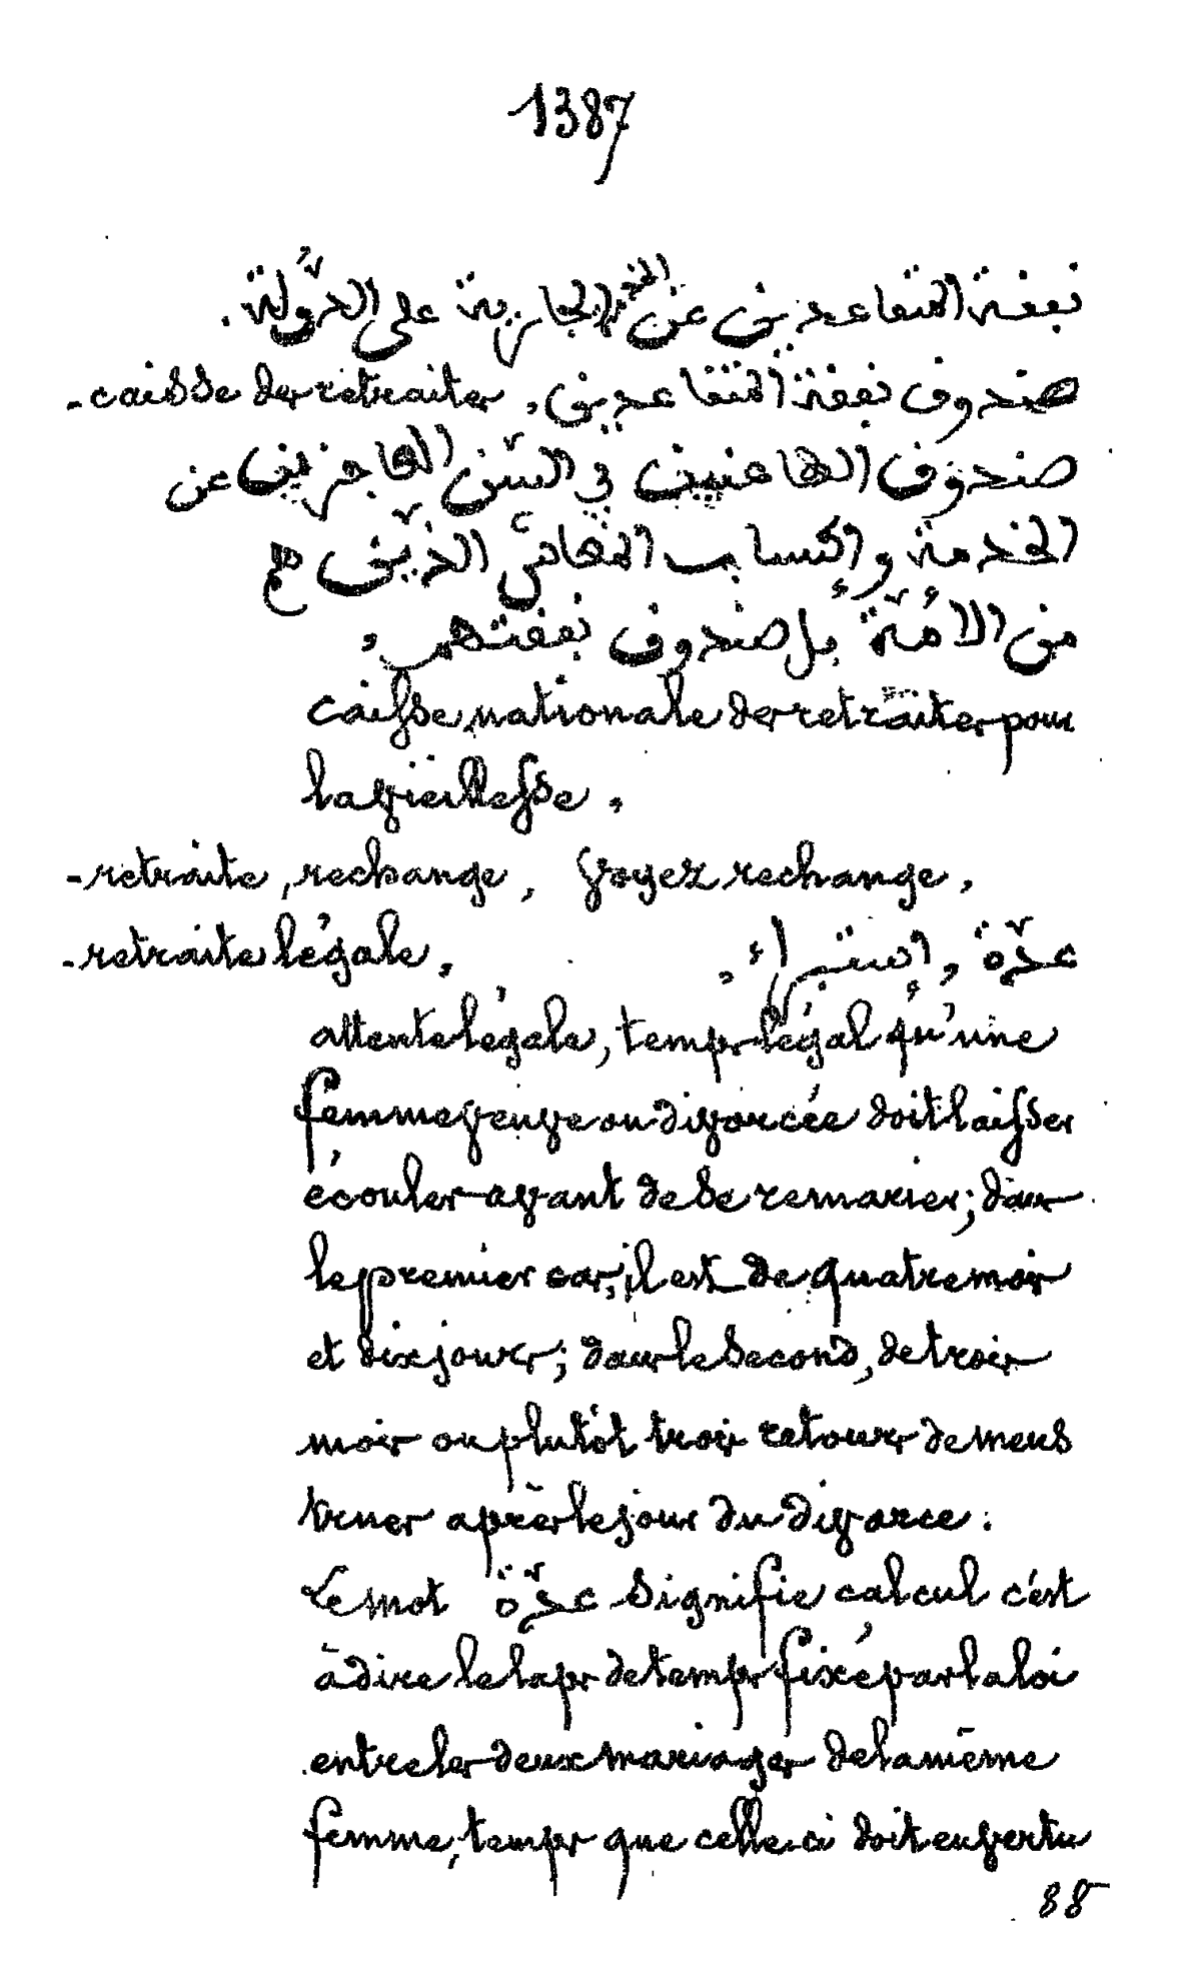 1387
نفقة المتقاعدين عن الخدمة الجارية على الدّولة.
- caisse des retraites, صندوق نفقة المتقاعدين,
صندوق الطاعنين في السّنّ العاجزين عن
الخدمة وإكتساب المعاش الذّين هم
من الأمّة بل صندوق نفقتهم,
caisse nationale des retraites pour
la vieillesse,
- retraite, rechange, voyez rechange,
- retraite légale, عدّة, إستبراء,
attente légale, temps légal qu'une
femme veuve ou divorcée doit laisser
écouler avant de se remarier; dans
le premier cas, il est de quatre mois
et dix jours; dans le second, de trois
mois ou plutôt trois retours de mens
trues après le jour du divorce.
Le mot عدّة signifie calcul c'est
à dire le laps de temps fixé par la loi
entre les deux mariages de la même
femme, temps que celle-ci doit en vertu
88